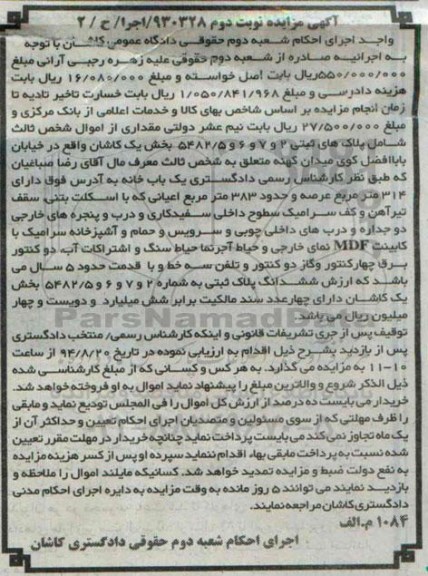 آگهی مزایده نوبت دوم ۹۳۰۳۲۸/اجرا/ ح / ۲
واحد اجرای احکام شعبه دوم حقوقی دادگاه عمومی کاشان با توجه
به اجرائیه صادره از شعبه دوم حقوقی علیه زهره رجبی آرانی مبلغ
۵۵۰/۰۰۰/۰۰۰ریال بابت اصل خواسته و مبلغ ۱۶/۰۸۰/۰۰۰ ریال بابت
هزینه دادرسی و مبلغ ۱/۰۵۰/۸۴۱/۹۶۸ ریال بابت خسارت تاخیر تادیه تا
زمان انجام مزایده بر اساس شاخص بهای کالا و خدمات اعلامی از بانک مرکزی و
مبلغ ۲۷/۵۰۰/۰۰۰ ریال بابت نیم عشر دولتی مقداری از اموال شخص ثالث
شامل پلاک های ثبتی ۲ و ۷ و ۶ و ۵۴۸۲/۵ بخش یک کاشان واقع در خیابان
باباافضل کوی میدان کهنه متعلق به شخص ثالث معرف مال آقای رضا صباغیان
که طبق نظر کارشناس رسمی دادگستری یک باب خانه به آدرس فوق دارای
۳۱۴ متر مربع عرصه و حدود ۳۸۳ متر مربع اعیانی که با اسکلت بتنی، سقف
تیرآهن و کف سرامیک سطوح داخلی سفیدکاری و درب و پنجره های خارجی
دو جداره و درب های داخلی چوبی و سرویس و حمام و آشپزخانه سرامیک با
کابینت MDF نمای خارجی و حیاط آجرنما حیاط سنگ و اشتراکات آب، دو کنتور
برق چهارکنتور وگاز دو کنتور و تلفن سه خط و با قدمت حدود ۵ سال می
باشد که ارزش ششدانگ پلاک ثبتی به شماره ۲ و ۷ و ۶ و ۵۴۸۲/۵ بخش
یک کاشان دارای چهارعدد سند مالکیت برابر شش میلیارد و دویست و چهار
میلیون ریال می باشد.
توقیف پس از جری تشریفات قانونی و اینکه کارشناس رسمی/ منتخب دادگستری
پس از بازدید بشرح ذیل اقدام به ارزیابی نموده در تاریخ ۹۴/۸/۲۰ از ساعت
۱۰-۱۱ به مزایده می گذارد. به هر کس و کسانی که از مبلغ کارشناسی شده
ذیل الذکر شروع و والاترین مبلغ را پیشنهاد نماید اموال به او فروخته خواهد شد.
خریدار می بایست ده درصد از ارزش کل اموال را فی المجلس تودیع نماید و مابقی
را ظرف مهلتی که از سوی مسئولین و متصدیان اجرای احکام تعیین و حداکثر آن از
یک ماه تجاوز نمی کند می بایست پرداخت نماید چنانچه خریدار در مهلت مقرر تعیین
شده نسبت به پرداخت مابقی بهاء اقدام ننماید سپرده او پس از کسر هزینه مزایده
به نفع دولت ضبط و مزایده تمدید خواهد شد. کسانیکه مایلند اموال را ملاحظه و
بازدید نمایند می توانند ۵ روز مانده به وقت مزایده به دایره اجرای احکام مدنی
دادگستری کاشان مراجعه نمایند.
۱۰۸۴ م.الف
اجرای احکام شعبه دوم حقوقی دادگستری کاشان
ParsNamadData